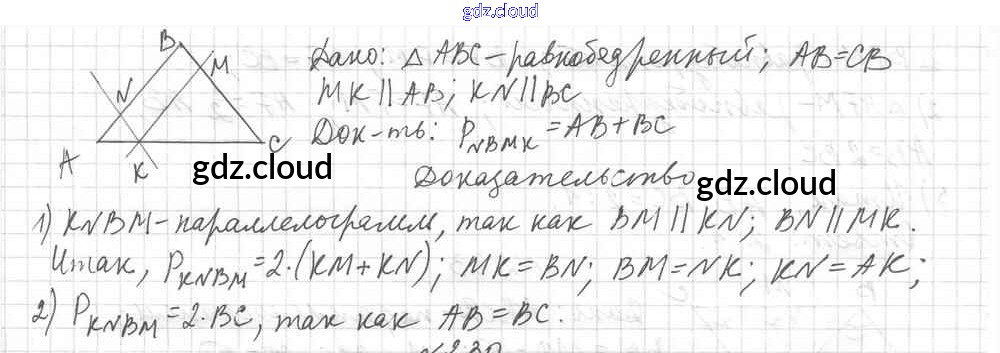 gdz.cloud
Дано: △ ABC - равнобедренный; AB=CB
MK || AB; KN || BC
Док-ть: P_NBMK = AB+BC
B
M
N
A
K
C
gdz.cloud
Доказательство
gdz.cloud
1) KNBM - параллелограмм, так как BM || KN; BN || MK.
Итак, P_KNBM = 2·(KM+KN); MK=BN; BM=NK; KN=AK;
2) P_KNBM = 2·BC, так как AB=BC.